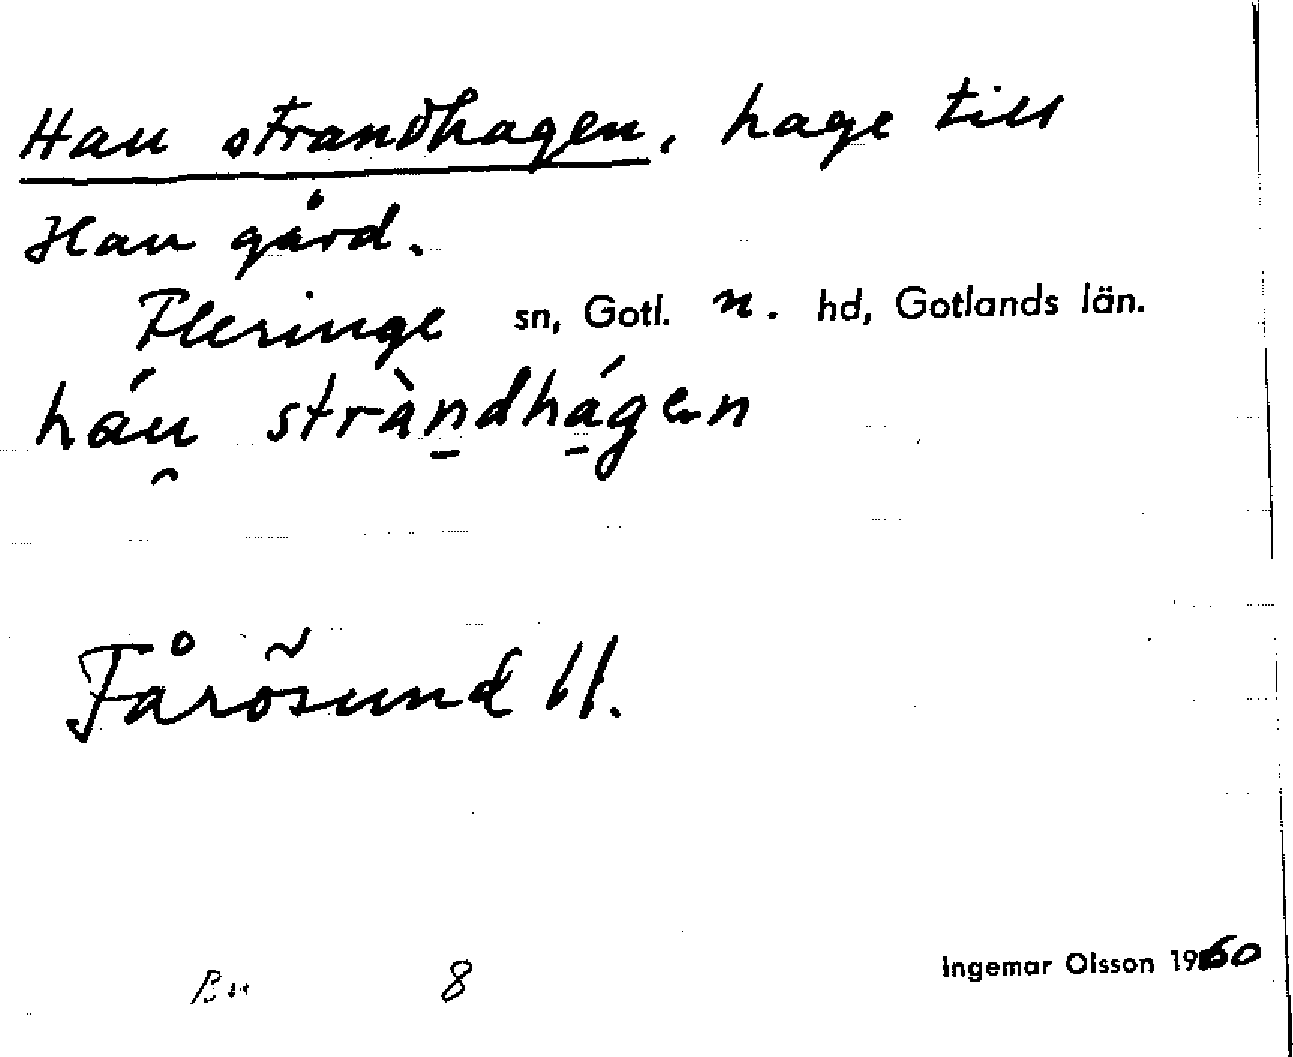 Hau strandhagen, hage till
Hau gård.
Fleringe sn, Gotl. n. hd, Gotlands län.
háu stràndhágen
Fårösund 11.
8 Ingemar Olsson 1960